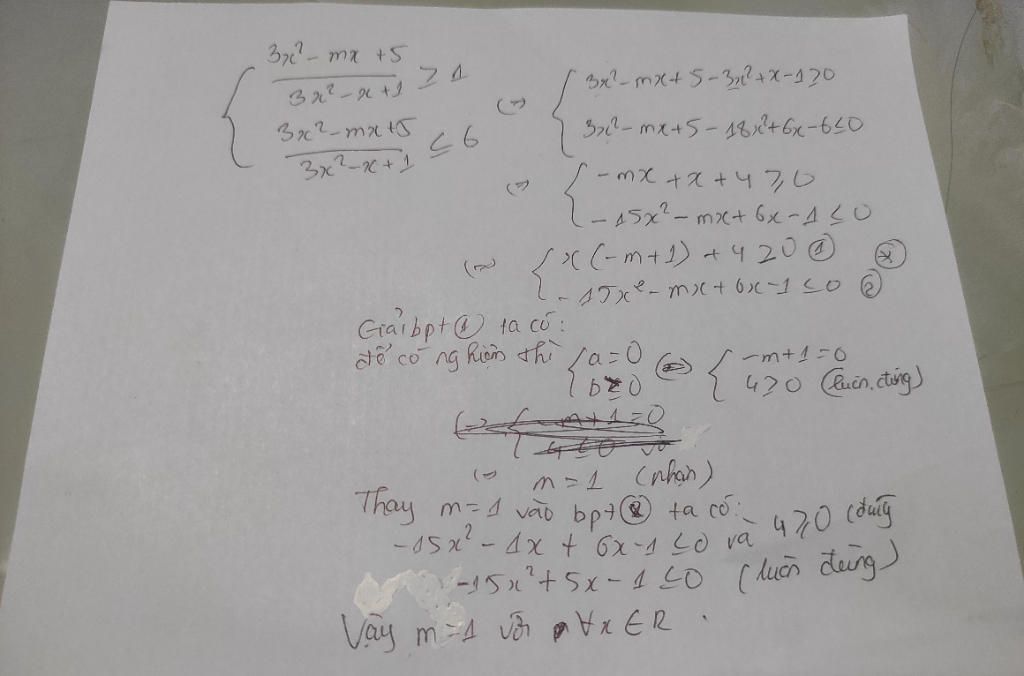 { (3x² - mx + 5)/(3x² - x + 1) ≥ 1
{ (3x² - mx + 5)/(3x² - x + 1) ≤ 6
(=) { 3x² - mx + 5 - 3x² + x - 1 ≥ 0
{ 3x² - mx + 5 - 18x² + 6x - 6 ≤ 0
(=) { - mx + x + 4 ≥ 0
{ - 15x² - mx + 6x - 1 ≤ 0
(=) { x(-m+1) + 4 ≥ 0 ①
{ - 15x² - mx + 6x - 1 ≤ 0 ②
Giải bpt ① ta có:
để có nghiệm thì { a = 0 (=) { -m+1 = 0
{ b ≥ 0 { 4 ≥ 0 (luôn đúng)
(=) m = 1 (nhận)
Thay m = 1 vào bpt ② ta có:
-15x² - 1x + 6x - 1 ≤ 0 và 4 ≥ 0 (đúng
-15x² + 5x - 1 ≤ 0 (luôn đúng)
Vậy m = 1 với ∀x ∈ R .